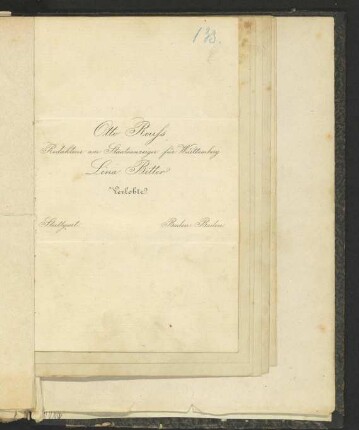 133.
Otto Reuß
Redakteur am Staatsanzeiger für Württemberg
Lina Bitter
Verlobte.
Stuttgart. Baden-Baden